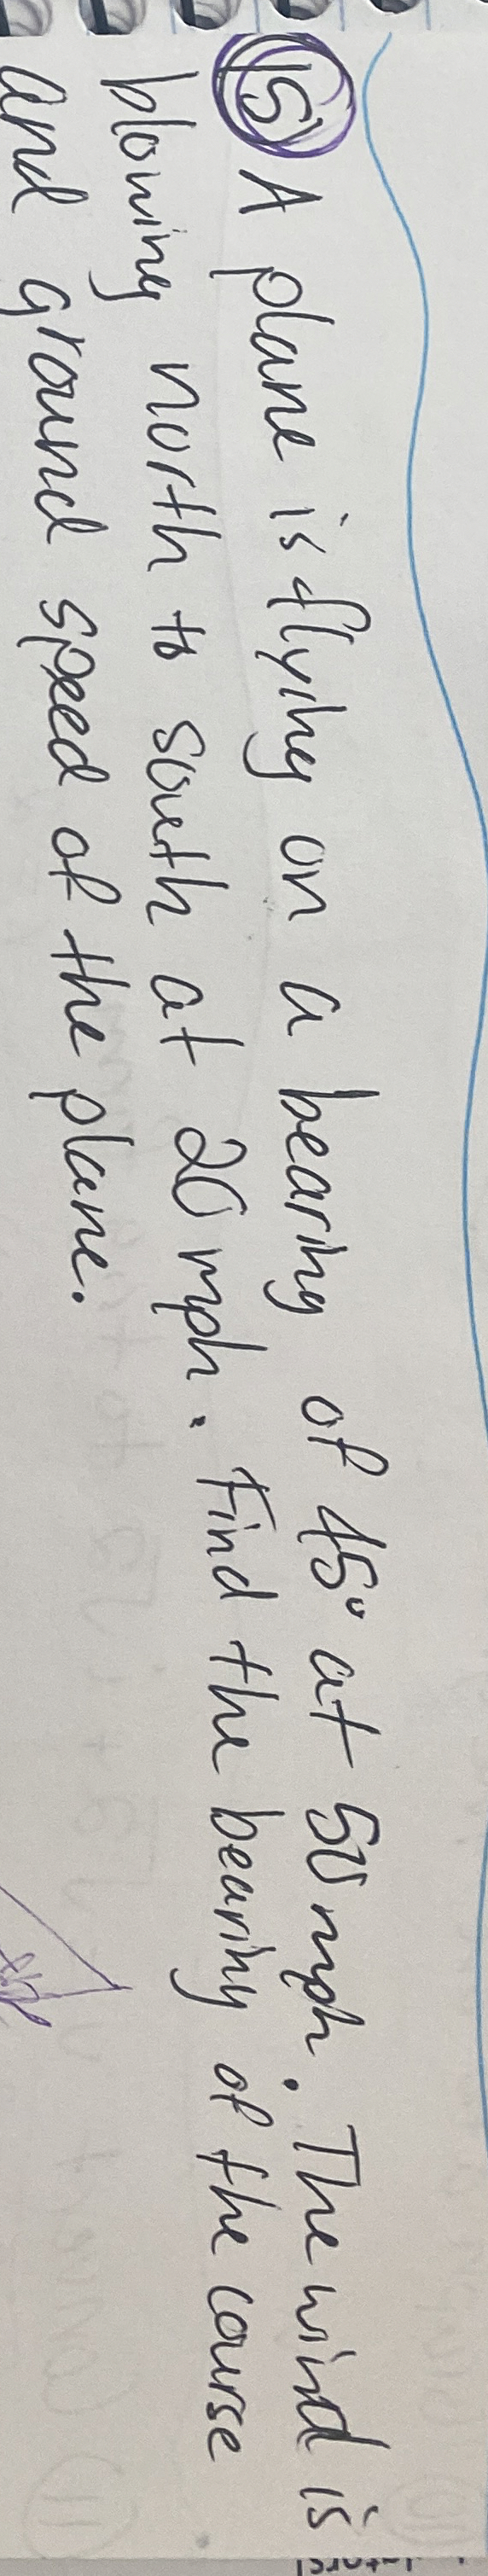 15) A plane is flying on a bearing of 45° at 50 mph. The wind is
blowing north to south at 20 mph. Find the bearing of the course
and ground speed of the plane.